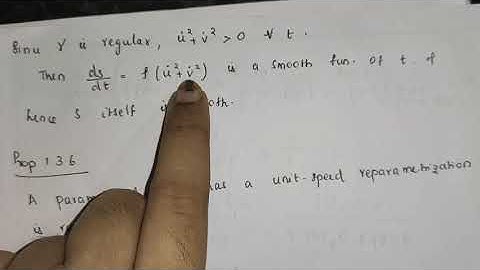 Since γ is regular, u̇²+v̇² > 0 ∀ t.
Then ds/dt = f(u̇²+v̇²) is a smooth fun. of t &
hence s itself
Prop 1.3.6
A has a unit-speed reparametrization
is